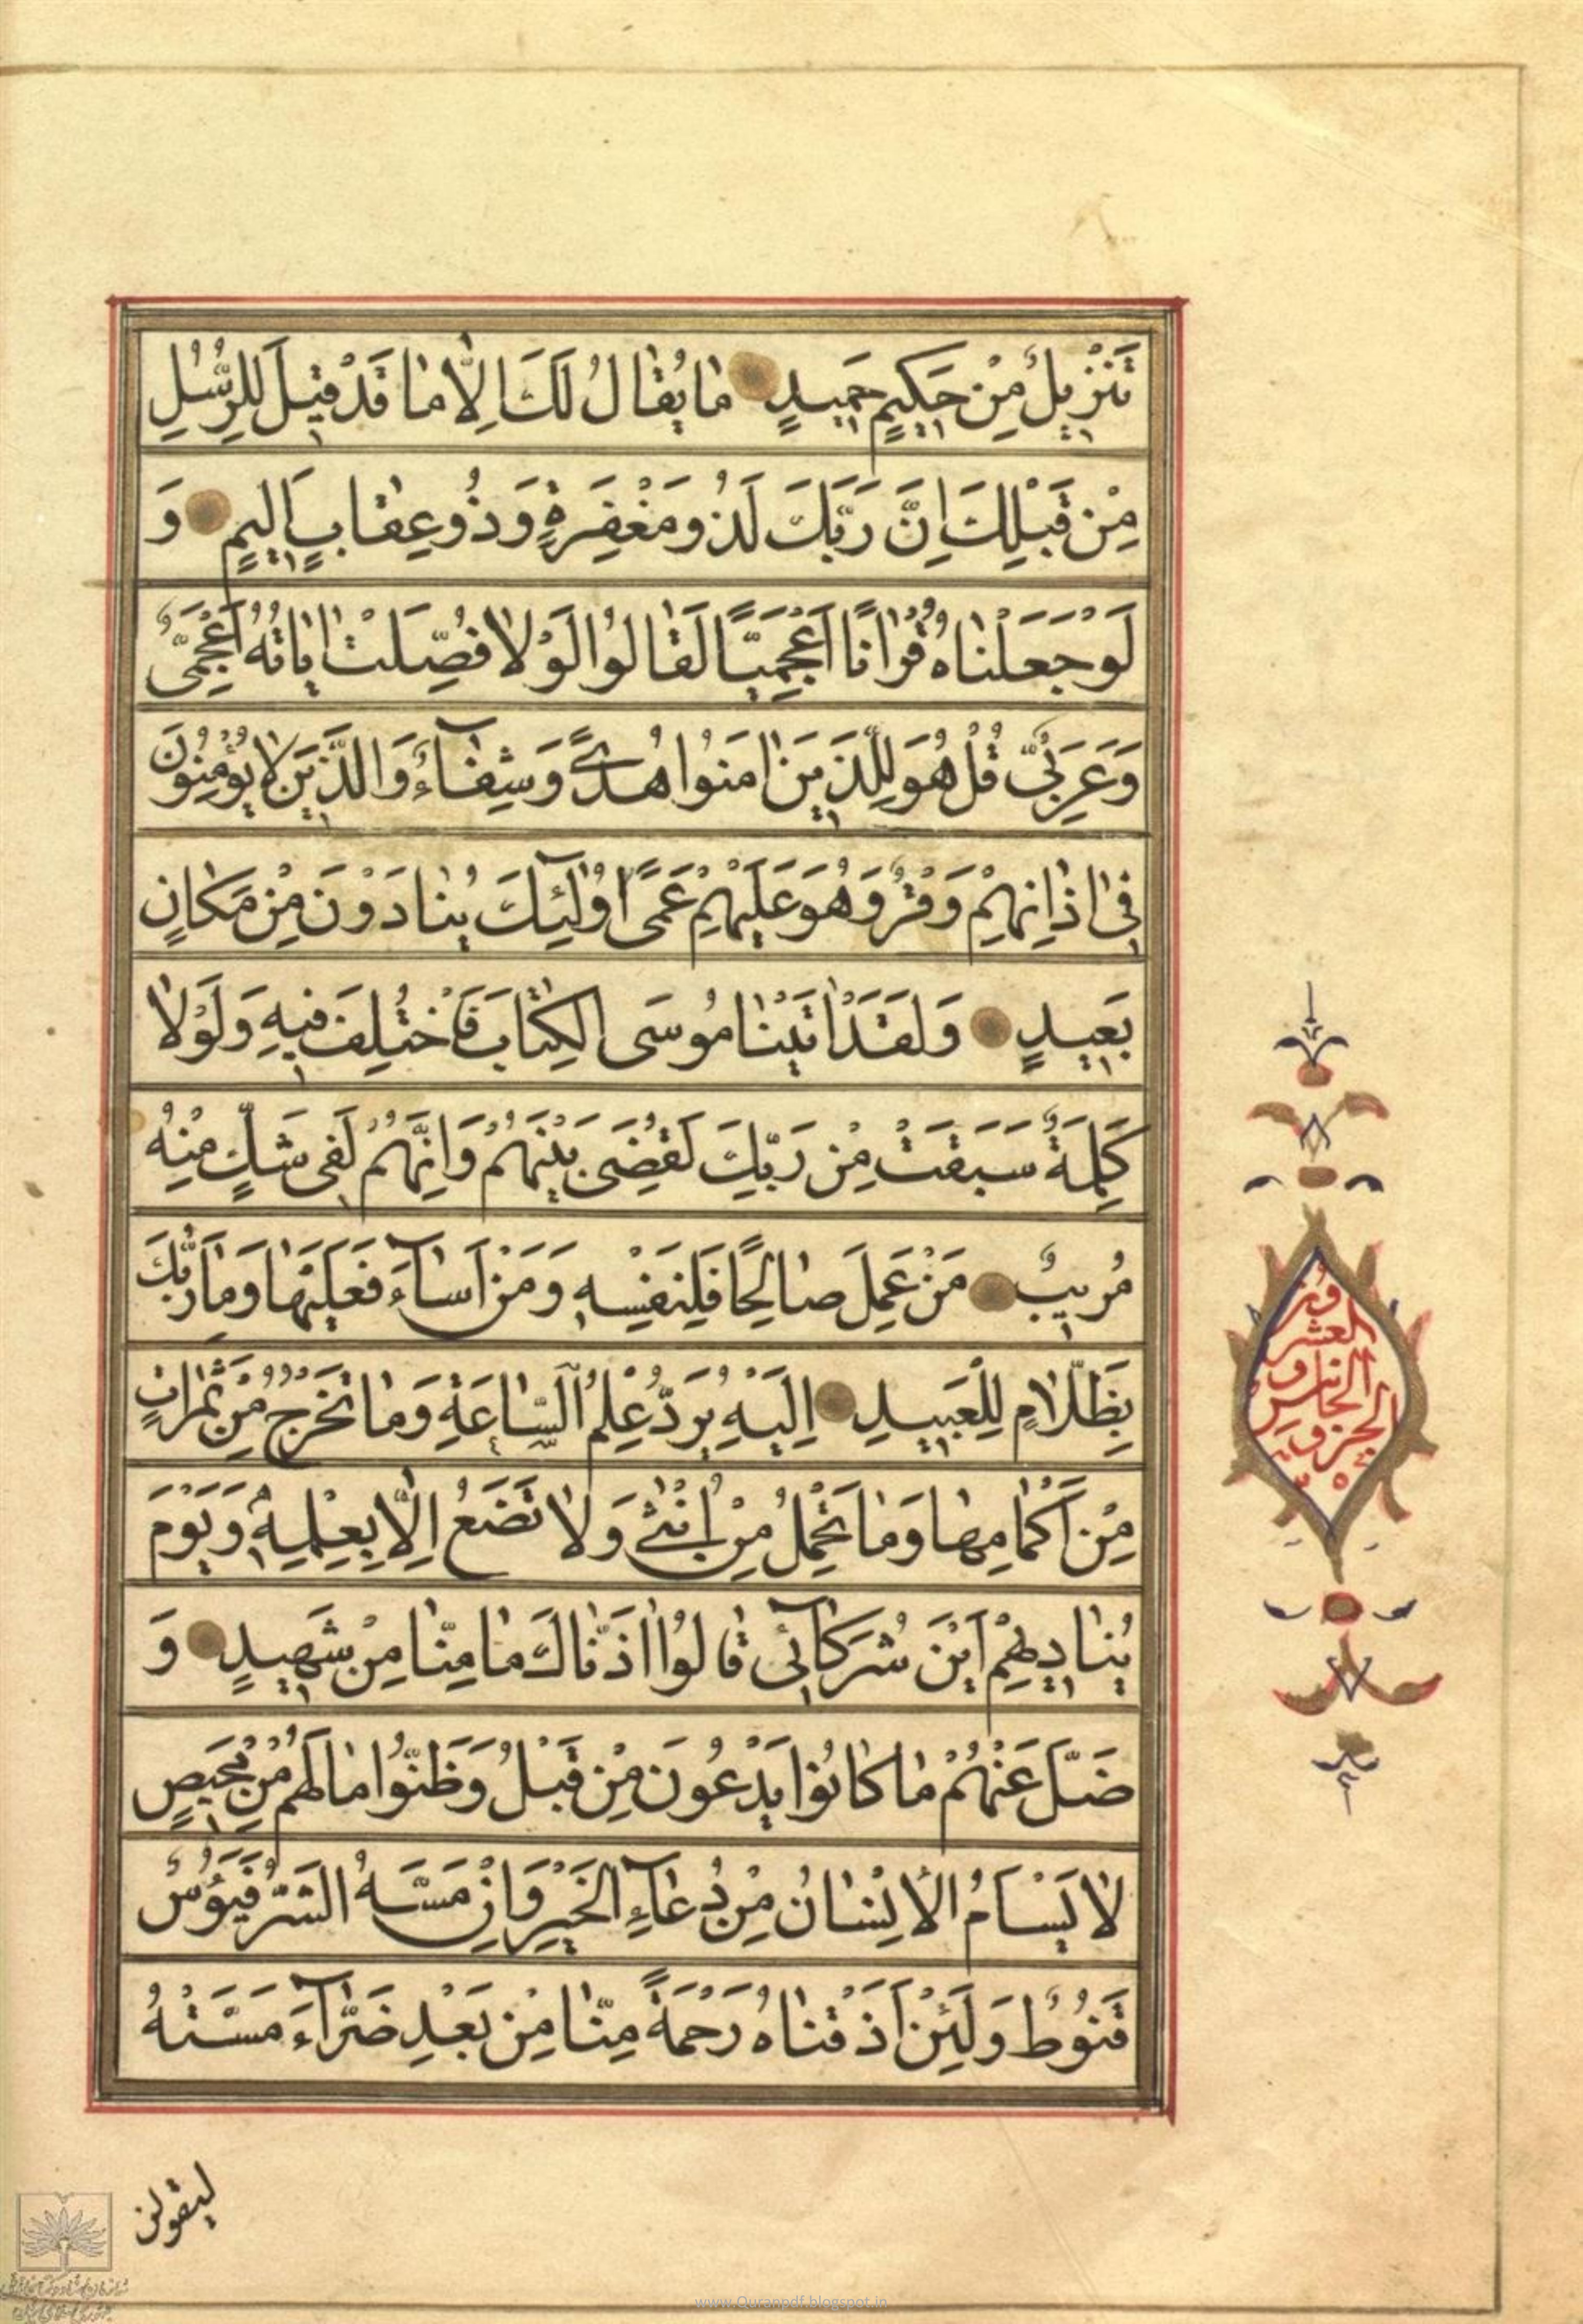 تَنْزِیلٌ مِنْ حَكِیمٍ حَمِیدٍ مٰا یُقٰالُ لَكَ اِلّٰا مٰا قَدْ قِیلَ لِلرُّسُلِ
مِنْ قَبْلِكَ اِنَّ رَبَّكَ لَذُو مَغْفِرَةٍ وَ ذُو عِقٰابٍ اَلِیمٍ وَ
لَوْ جَعَلْنٰاهُ قُرْاٰنًا اَعْجَمِیًّا لَقٰالُوا لَوْلٰا فُصِّلَتْ اٰیٰاتُهُ اَعْجَمِیٌّ
وَ عَرَبِیٌّ قُلْ هُوَ لِلَّذِینَ اٰمَنُوا هُدًی وَ شِفٰآءٌ وَ الَّذِینَ لٰا یُؤْمِنُونَ
فِی اٰذٰانِهِمْ وَقْرٌ وَ هُوَ عَلَیْهِمْ عَمًی اُولٰٓئِكَ یُنٰادَوْنَ مِنْ مَكٰانٍ
بَعِیدٍ وَ لَقَدْ اٰتَیْنٰا مُوسَی الْكِتٰابَ فَاخْتُلِفَ فِیهِ وَ لَوْلٰا
كَلِمَةٌ سَبَقَتْ مِنْ رَبِّكَ لَقُضِیَ بَیْنَهُمْ وَ اِنَّهُمْ لَفِی شَكٍّ مِنْهُ
مُرِیبٍ مَنْ عَمِلَ صٰالِحًا فَلِنَفْسِهِ وَ مَنْ اَسٰآءَ فَعَلَیْهٰا وَ مٰا رَبُّكَ
بِظَلّٰامٍ لِلْعَبِیدِ اِلَیْهِ یُرَدُّ عِلْمُ السّٰاعَةِ وَ مٰا تَخْرُجُ مِنْ ثَمَرٰاتٍ
مِنْ اَكْمٰامِهٰا وَ مٰا تَحْمِلُ مِنْ اُنْثٰی وَ لٰا تَضَعُ اِلّٰا بِعِلْمِهِ وَ یَوْمَ
یُنٰادِیهِمْ اَیْنَ شُرَكٰآئِی قٰالُوا اٰذَنّٰاكَ مٰا مِنّٰا مِنْ شَهِیدٍ وَ
ضَلَّ عَنْهُمْ مٰا كٰانُوا یَدْعُونَ مِنْ قَبْلُ وَ ظَنُّوا مٰا لَهُمْ مِنْ مَحِیصٍ
لٰا یَسْاَمُ الْاِنْسٰانُ مِنْ دُعٰآءِ الْخَیْرِ وَ اِنْ مَسَّهُ الشَّرُّ فَیَؤُسٌ
قَنُوطٌ وَ لَئِنْ اَذَقْنٰاهُ رَحْمَةً مِنّٰا مِنْ بَعْدِ ضَرّٰآءَ مَسَّتْهُ
لیقولن
العشر
الخامس و
www.Quranpdf.blogspot.in